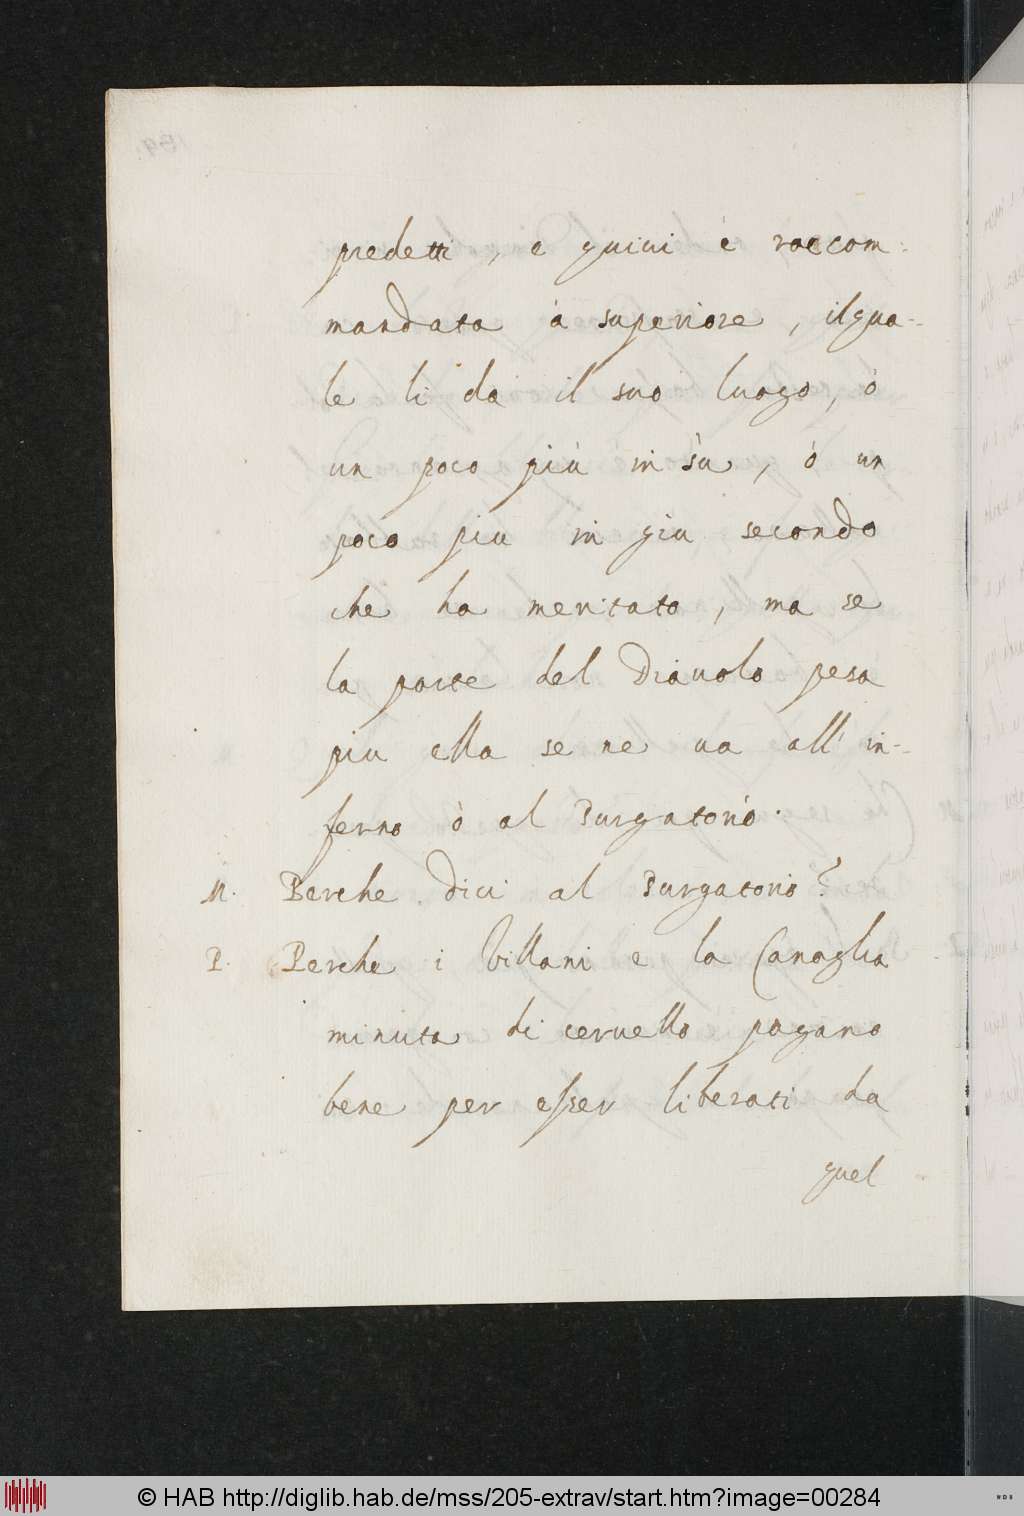 predetti, e quiui è raccom-
mandata à superiore, ilqua-
le li da il suo luogo, ò
un poco più in sù, ò un
poco piu in giu secondo
che ha meritato, ma se
la parte del Diauolo pesa
piu ella se ne ua all' in-
ferno ò al Purgatorio.
M. Perche dici al Purgatorio?
P. Perche i Villani e la Canaglia
minuta di ceruello pagano
bene per esser liberati da
quel
© HAB http://diglib.hab.de/mss/205-extrav/start.htm?image=00284